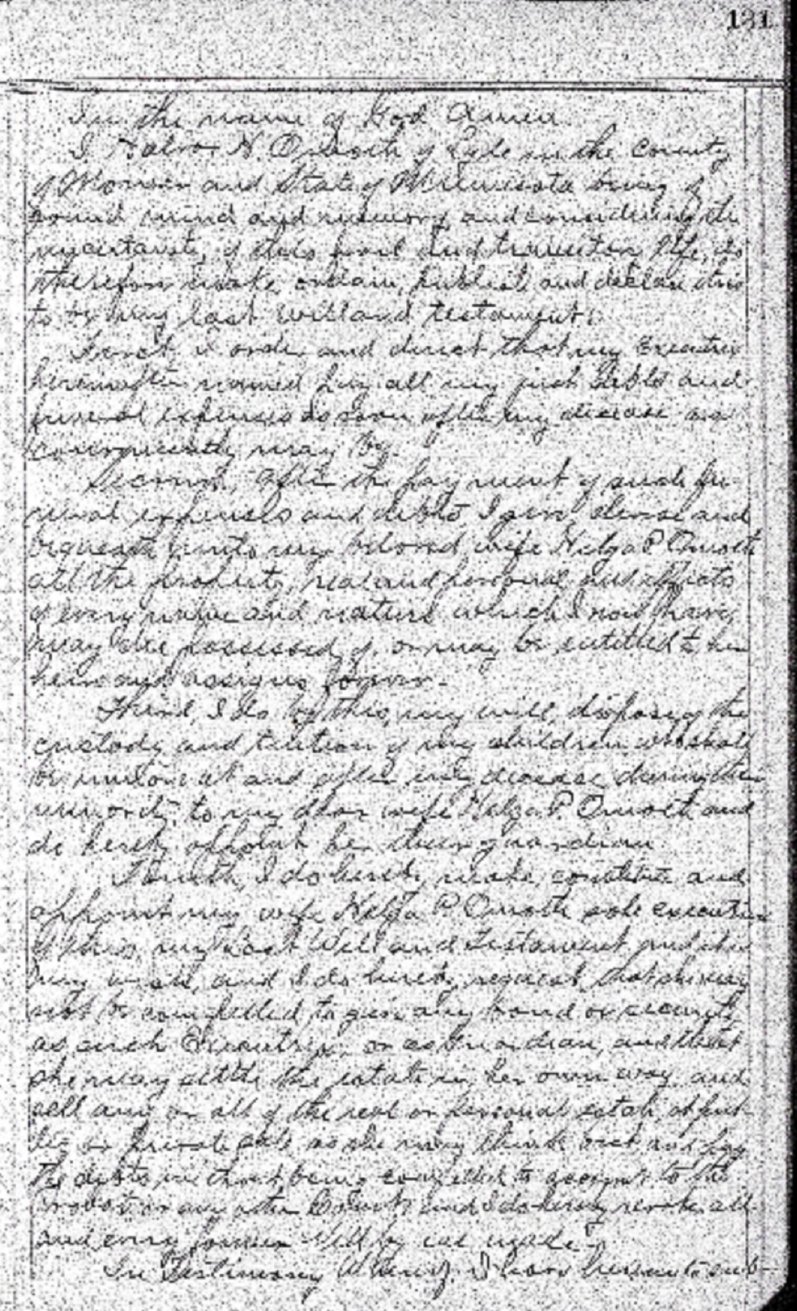 131
In the name of God Amen.
I Halvor H. Omoth of Lyle in the County
of Mower and State of Minnesota being of
sound mind and memory and considering the
uncertainty of this frail and transitory life, do
therefore make, ordain, publish and declare this
to be my last will and testament:
First, I order and direct that my Executrix
hereinafter named pay all my just debts and
funeral expenses as soon after my decease as
conveniently may be.
Second, After the payment of such fu-
neral expenses and debts, I give, devise and
bequeath unto my beloved wife Helga P. Omoth
all the property, real and personal and effects
of every name and nature which I now have,
may die possessed of, or may be entitled to her
heirs and assigns forever.
Third, I do by this, my will, dispose of the
custody and tuition of my children who shall
be minors at and after my decease during their
minority, to my dear wife Helga P. Omoth and
do hereby appoint her their guardian.
Fourth, I do hereby, make, constitute and
appoint my wife Helga P. Omoth sole executrix
of this, my Last Will and Testament and
my wish, and I do hereby request, that she may
not be compelled to give any bond or security
as such Executrix, or as Guardian, and that
she may settle the estate in her own way, and
sell any or all of the real or personal estate, at pub-
lic or private sale as she may think best, and pay
the debts without being compelled to account to the
Probate or any other Court, and I do hereby revoke all
and every former Will by me made.
In Testimony Whereof, I have hereunto sub-